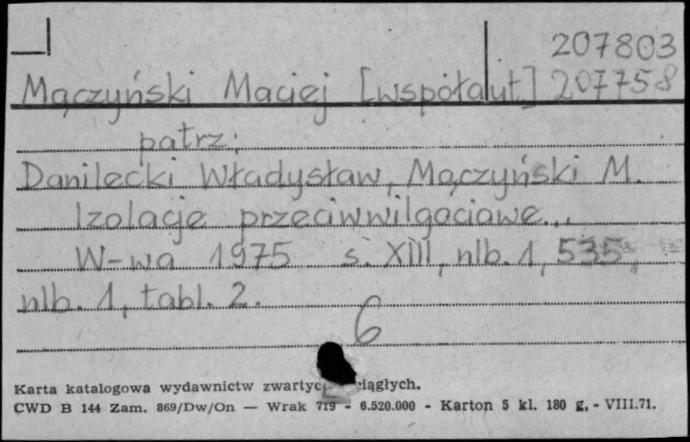 207803
Mączyński Maciej [współaut.] 207758
patrz:
Danilecki Władysław, Mączyński M.
Izolacje przeciwwilgociowe...
W-wa 1975 s. XIII, nlb. 1, 535,
nlb. 1, tabl. 2.
6
Karta katalogowa wydawnictw ciągłych.
CWD B 144 Zam. 869/Dw/On — Wrak 719 - 6.520.000 - Karton 5 kl. 180 g. - VIII.71.